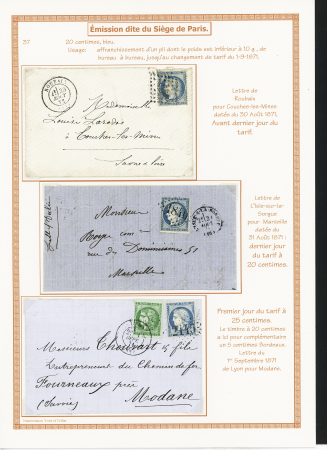 Émission dite du Siège de Paris.
37
20 centimes, bleu.
Usage: affranchissement d'un pli dont le poids est inférieur à 10 g, de
bureau à bureau, jusqu'au changement de tarif du 1-9-1871.
Lettre de
Roubaix
pour Couches-les-Mines
datée du 30 Août 1871.
Avant dernier jour du
tarif.
Mademoiselle
Louise
à Couches les Mines
Saône et Loire
Lettre de
L'Isle-sur-la-
Sorgue
pour Marseille
datée du
31 Août 1871:
dernier
jour du
tarif à
20 centimes.
Monsieur
rue des Dominicaines 51
Marseille
Premier jour du tarif à
25 centimes.
Le timbre à 20 centimes
a ici pour complémentaire
un 5 centimes Bordeaux.
Lettre du
1er Septembre 1871
de Lyon pour Modane.
Messieurs Chouvart & fils
Entrepreneurs du Chemin de fer
Fourneaux près
Modane
(Savoie)